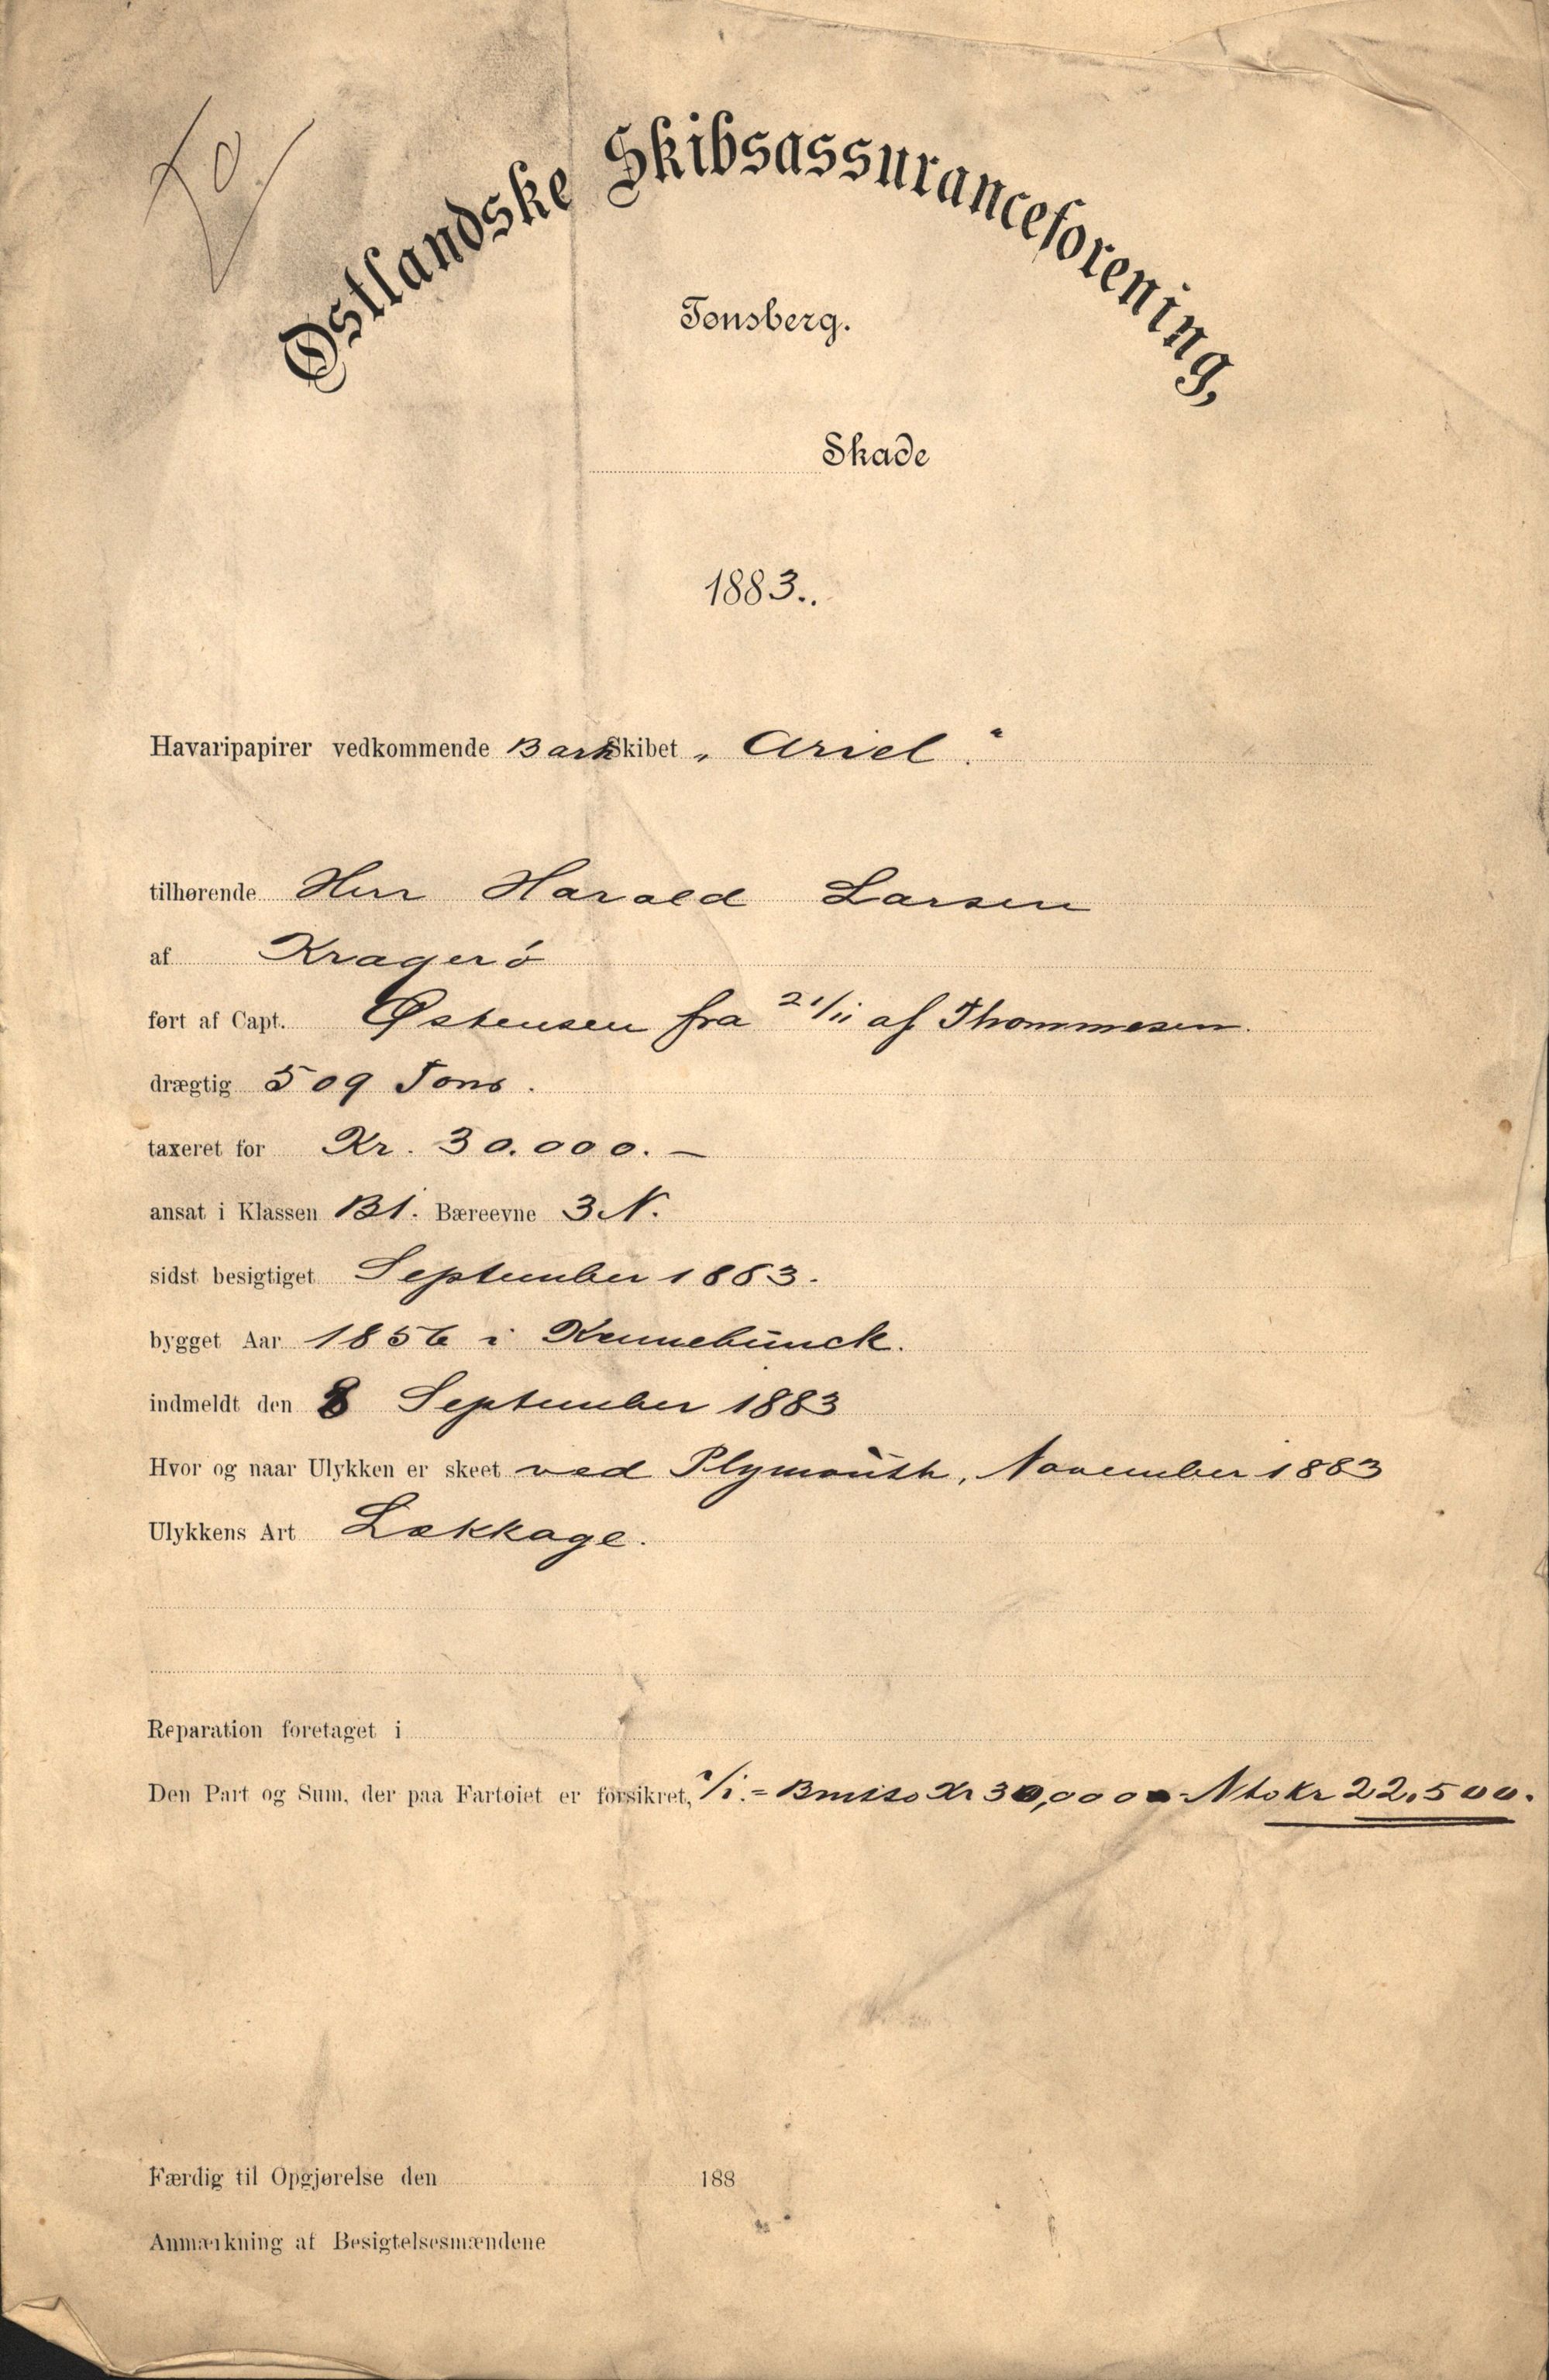 Østlandske Skibsassuranceforening,
Tønsberg.
Skade
1883..
Havaripapirer vedkommende Bark Skibet „ Ariel “.
tilhørende Herr Harald Larsen
af Kragerø
ført af Capt. Østensen fra 21/11 af Thommesen.
drægtig 509 Tons.
taxeret for Kr. 30.000. —
ansat i Klassen B1. Bæreevne 3 N.
sidst besigtiget September 1883.
bygget Aar 1856 i Kennebunck.
indmeldt den 8 September 1883
Hvor og naar Ulykken er skeet ved Plymouth, November 1883
Ulykkens Art Lækkage.
Reparation foretaget i
Den Part og Sum, der paa Fartøiet er forsikret, 1/1. = Brutto Kr 30,000 - Nto Kr 22.500.
Færdig til Opgjørelse den 188
Anmærkning af Besigtelsesmændene